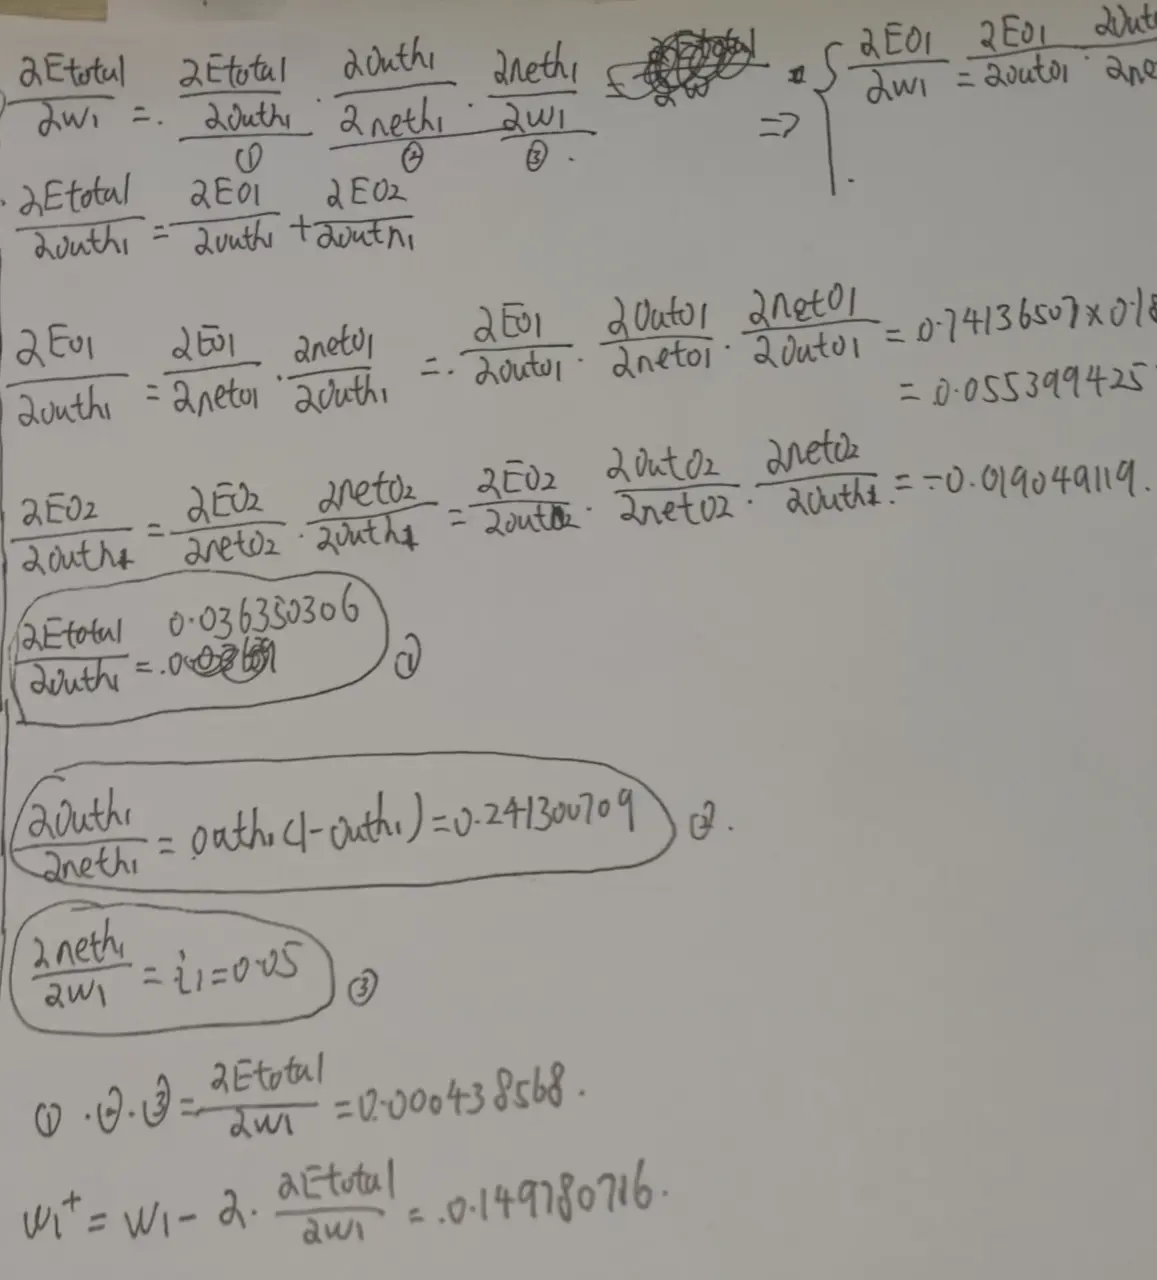 ∂Etotal/∂w1 =. ∂Etotal/∂outh1 · ∂outh1/∂neth1 · ∂neth1/∂w1 = ⇒ { ∂E01/∂w1 = ∂E01/∂out01 ·
① ② ③.
∂Etotal/∂outh1 = ∂E01/∂outh1 + ∂E02/∂outh1
∂E01/∂outh1 = ∂E01/∂net01 · ∂net01/∂outh1 =. ∂E01/∂out01 · ∂out01/∂net01 · ∂net01/∂out01 = 0.74136507×0.18
= 0.055399425
∂E02/∂outh1 = ∂E02/∂net02 · ∂net02/∂outh1 = ∂E02/∂out02 · ∂out02/∂net02 · ∂net02/∂outh1 = -0.019049119.
∂Etotal/∂outh1 = 0.036350306 ①
∂outh1/∂neth1 = outh1(1-outh1) = 0.241300709 ②.
∂neth1/∂w1 = i1 = 0.05 ③
①·②·③ = ∂Etotal/∂w1 = 0.000438568.
w1+ = w1 - 2· ∂Etotal/∂w1 =.0.149780716.